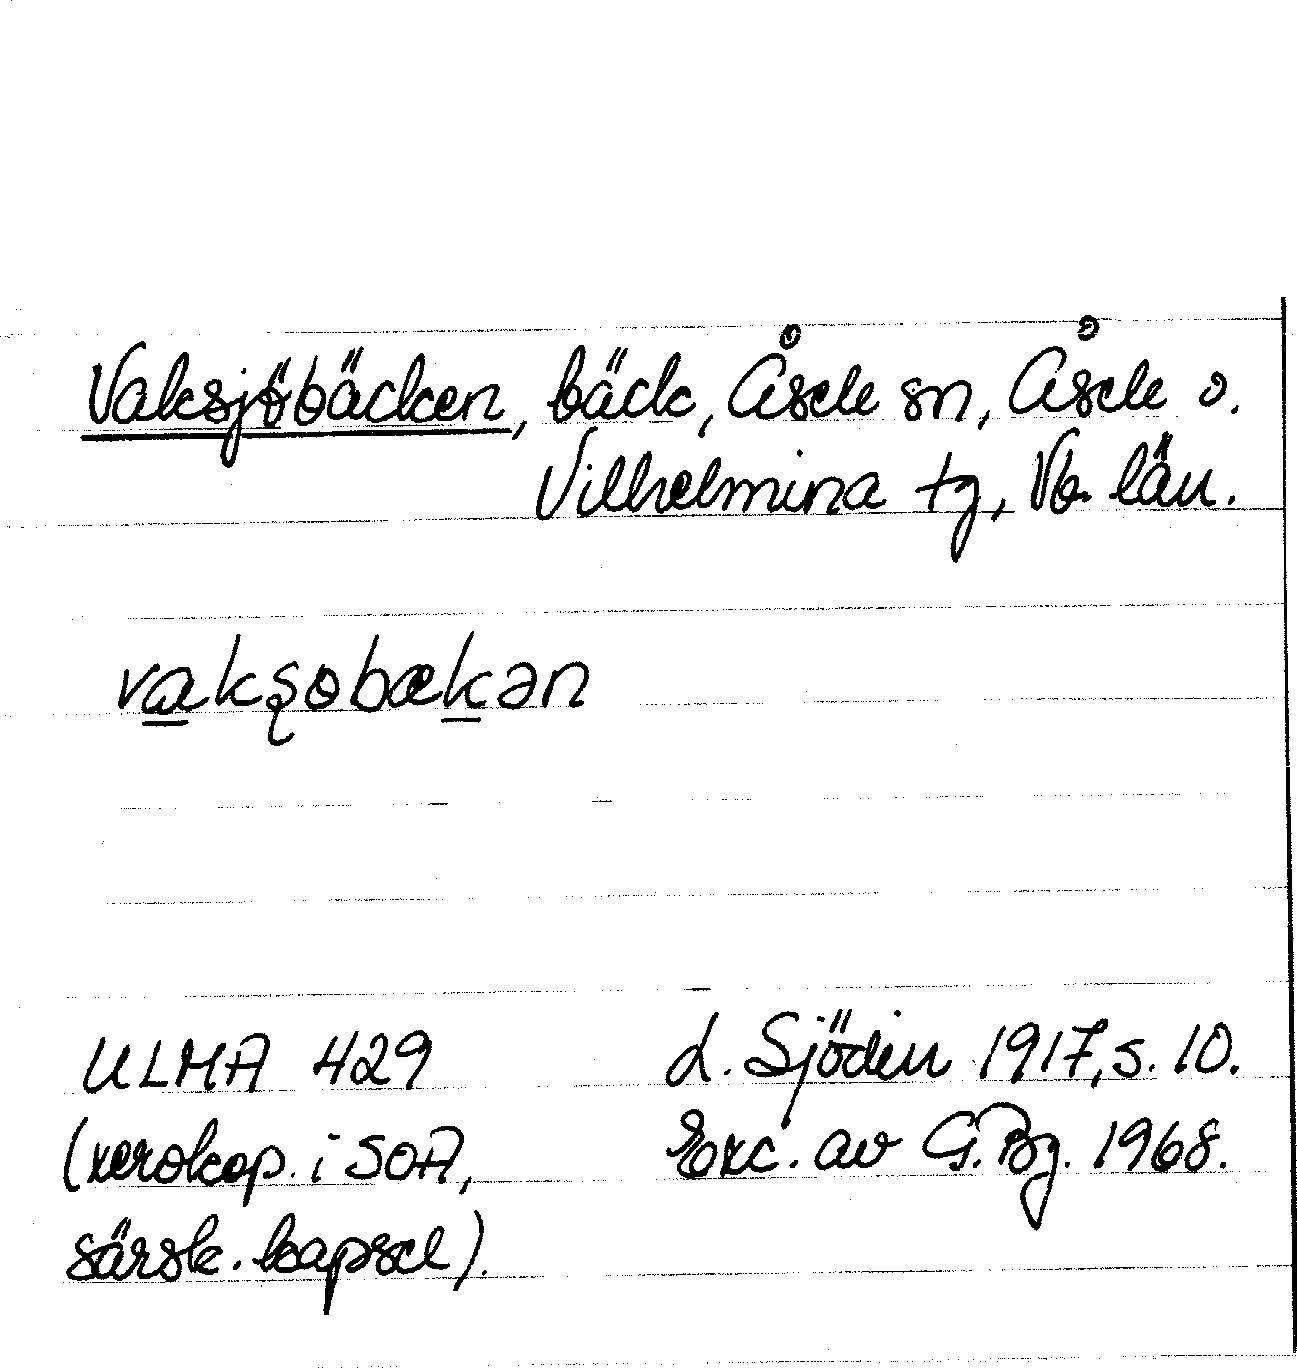 Vaksjöbäcken, bäck, Åsele sn, Åsele o.
Vilhelmina tg, Vb. län.
vakʂobækən
ULMA 429
L. Sjödin 1917, s. 10.
(xerokop. i SOA,
Exc. av G. Bg. 1968.
särsk. kapsel).